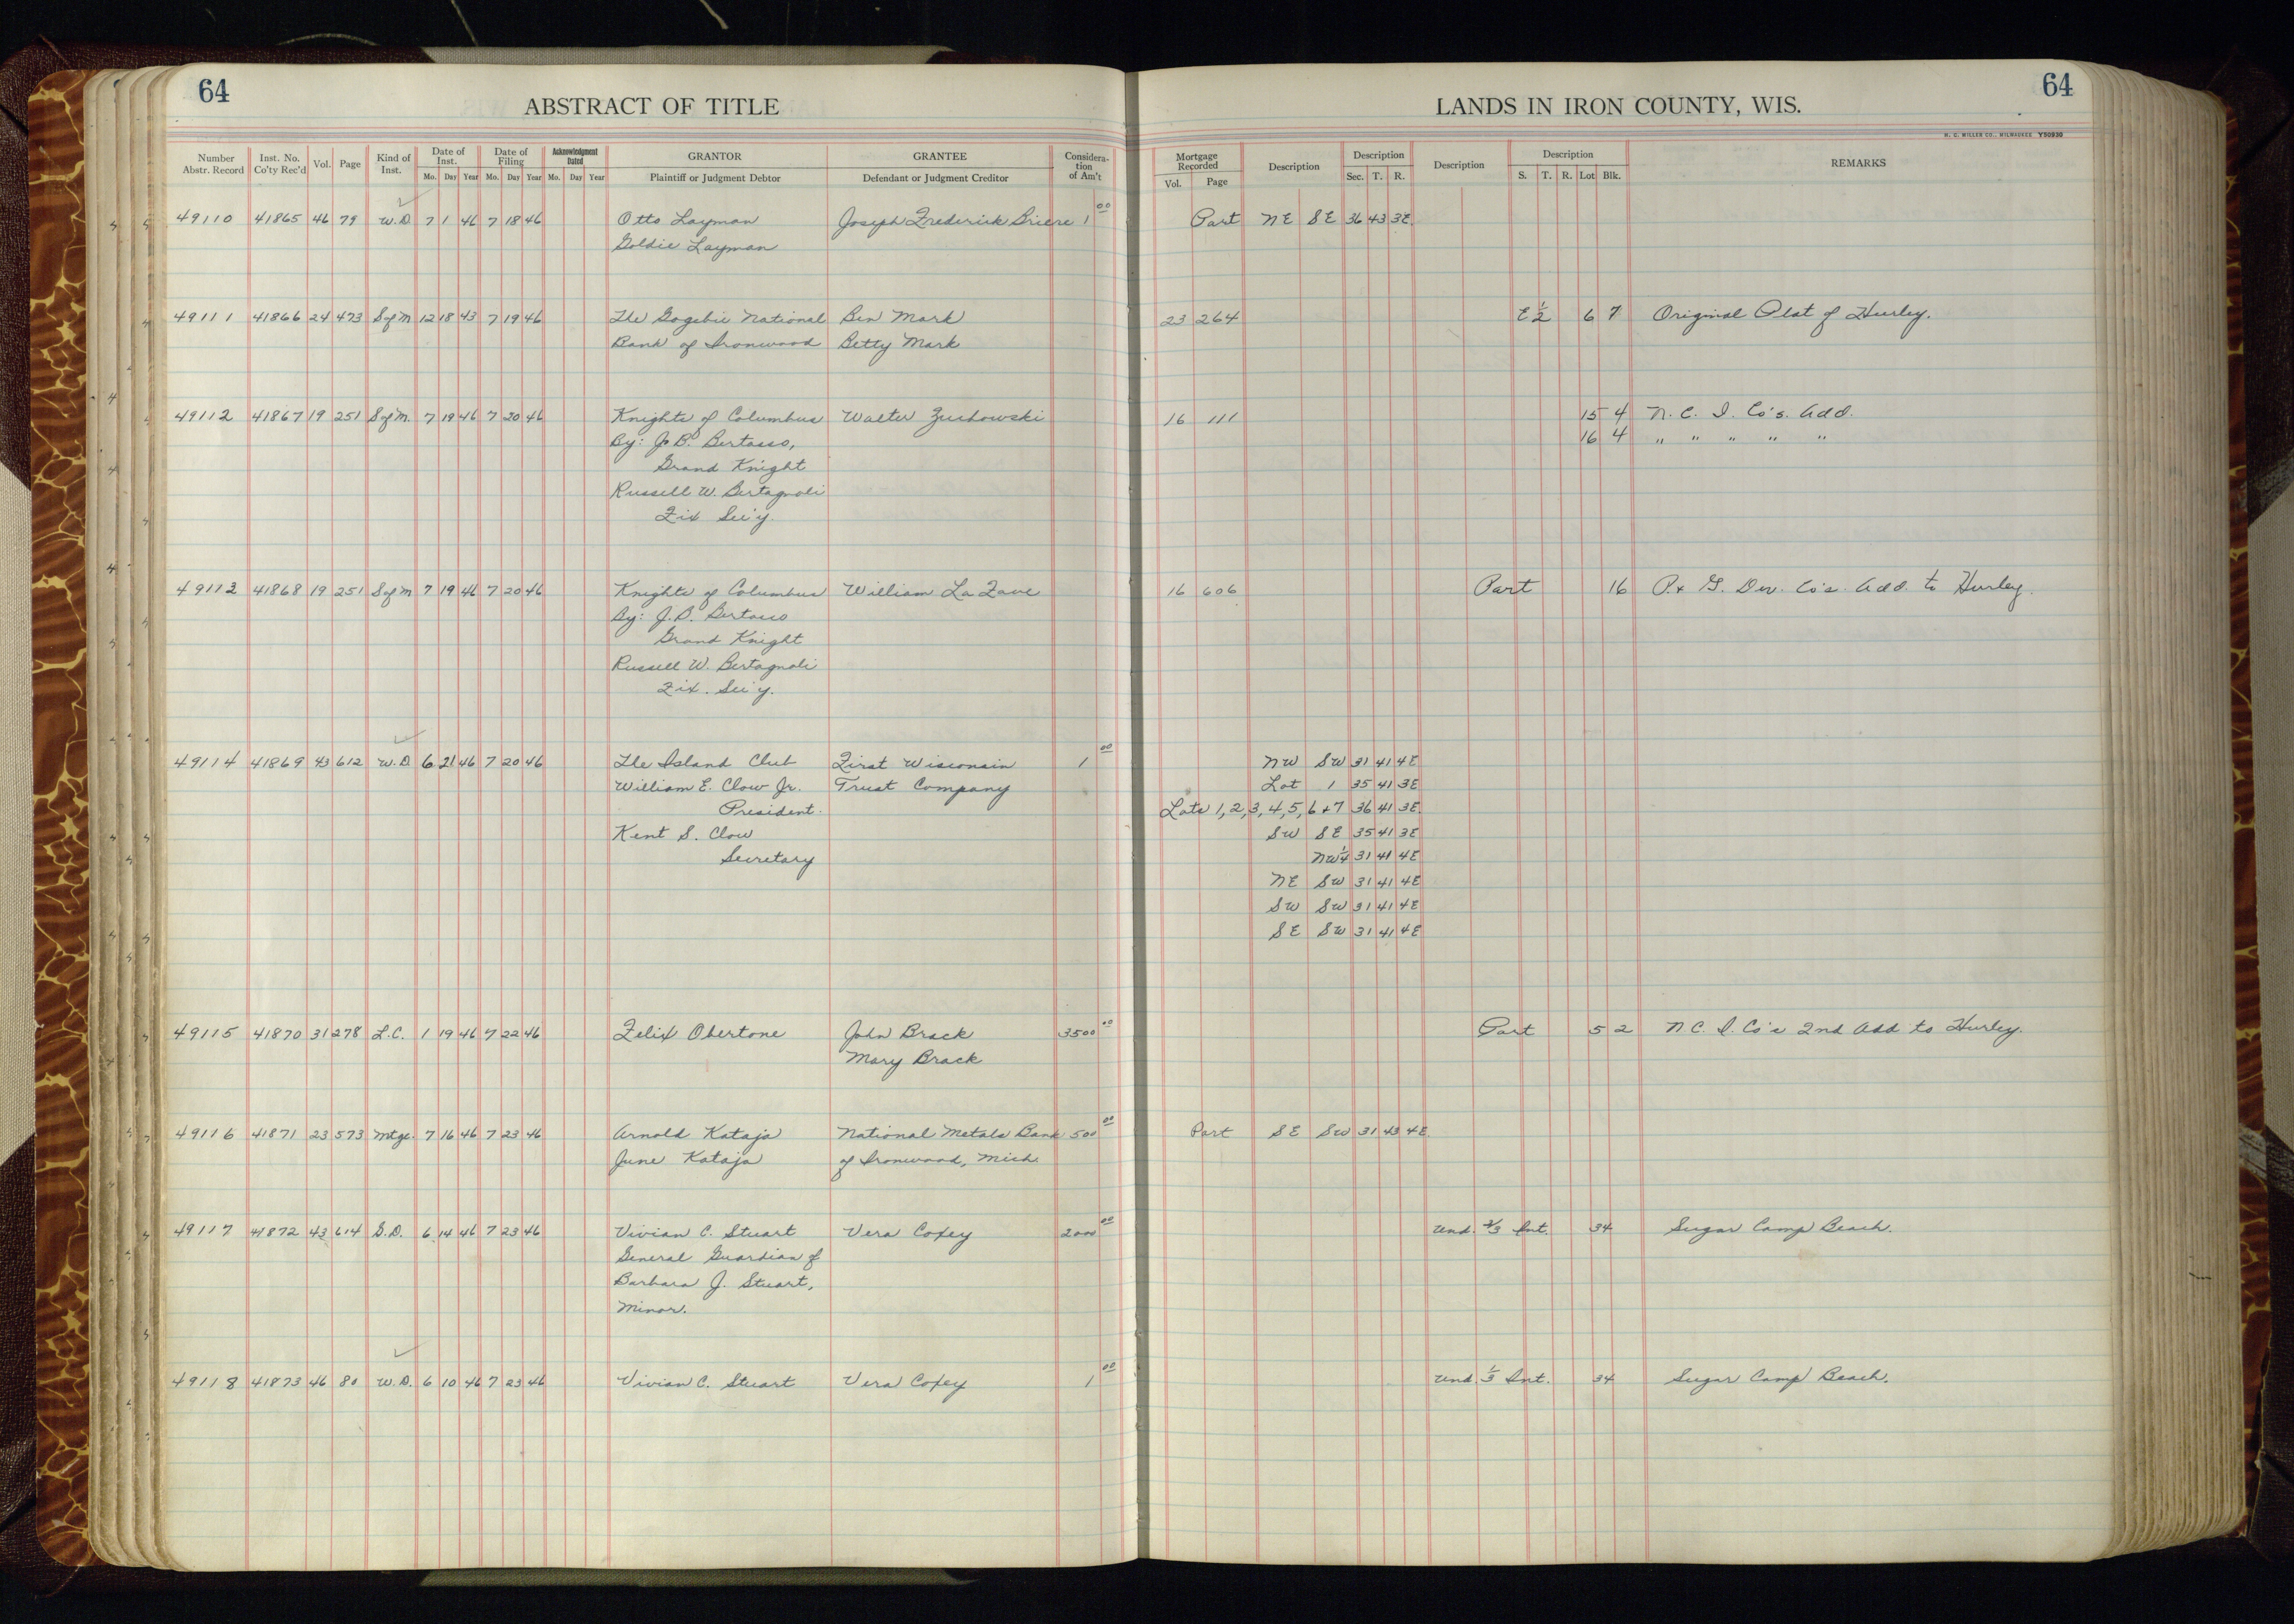 64
64
ABSTRACT OF TITLE
LANDS IN IRON COUNTY, WIS.
H. C. MILLER CO., MILWAUKEE Y50930
Number Abstr. Record Inst. No. Co'ty Rec'd Vol. Page Kind of Inst. Date of Inst. Mo. Day Year Date of Filing Mo. Day Year Acknowledgment Dated Mo. Day Year GRANTOR Plaintiff or Judgment Debtor GRANTEE Defendant or Judgment Creditor Considera-tion of Am't Mortgage Recorded Vol. Page Description Description Sec. T. R. Description Description S. T. R. Lot Blk. REMARKS
49110 41865 46 79 W.D. 7 1 46 7 18 46 Otto Layman Joseph Frederick Briere 1 00 Part NE SE 36 43 3E.
Goldie Layman
49111 41866 24 473 S of M 12 18 43 7 19 46 The Gogebic National Ben Mark 23 264 E 1/2 6 7 Original Plat of Hurley.
Bank of Ironwood Betty Mark
49112 41867 19 251 S of M. 7 19 46 7 20 46 Knights of Columbus Walter Zuchowski 16 111 15 4 N. C. I. Co's. Add.
By: J. B. Bertasso, 16 4 " " " " "
Grand Knight
Russell W. Bertagnoli
Fix Sec'y.
49113 41868 19 251 S of M 7 19 46 7 20 46 Knights of Columbus William La Fave 16 606 Part 16 P. + G. Dev. Co's. Add. to Hurley.
By: J. B. Bertasso
Grand Knight
Russell W. Bertagnoli
Fix. Sec'y.
49114 41869 43 612 W.D. 6 21 46 7 20 46 The Island Club First Wisconsin 1 00 NW SW 31 41 4E
William E. Clow Jr. Trust Company Lot 1 35 41 3E
President. Lots 1, 2, 3, 4, 5, 6 + 7 36 41 3E.
Kent S. Clow SW SE 35 41 3E
Secretary NW 1/4 31 41 4E
NE SW 31 41 4E
SW SW 31 41 4E
SE SW 31 41 4E
49115 41870 31 278 L.C. 1 19 46 7 22 46 Felix Obertone John Brack 3500 00 Part 5 2 N. C. I. Co's 2nd Add to Hurley.
Mary Brack
49116 41871 23 573 Mtge. 7 16 46 7 23 46 Arnold Kataja National Metals Bank 500 00 Part SE SW 31 43 4E.
June Kataja of Ironwood, Mich.
49117 41872 43 614 G.D. 6 14 46 7 23 46 Vivian C. Stuart Vera Coxey 2000 00 Und. 2/3 Int. 34 Sugar Camp Beach.
General Guardian of
Barbara J. Stuart,
Minor.
49118 41873 46 80 W.D. 6 10 46 7 23 46 Vivian C. Stuart Vera Coxey 1 00 Und. 1/3 Int. 34 Sugar Camp Beach.